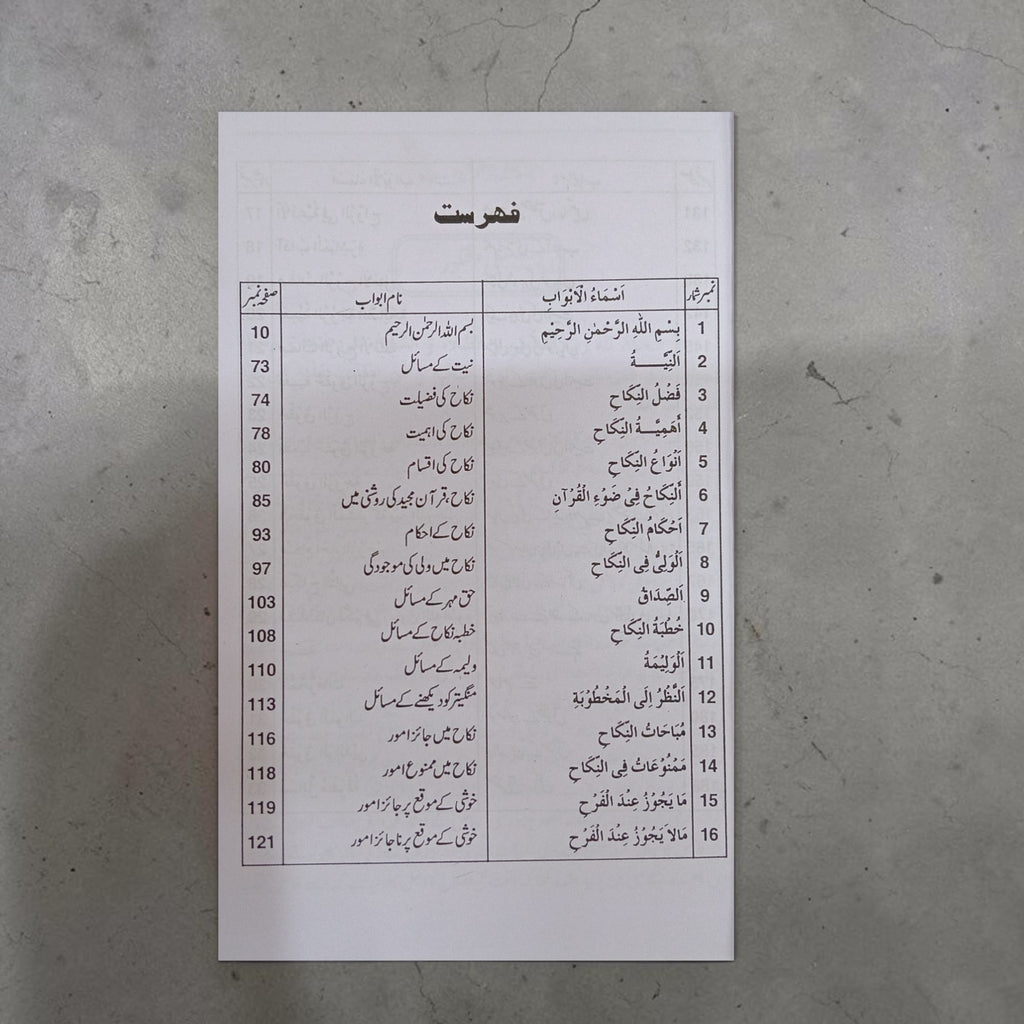 فہرست
نمبر شمار اَسْمَاءُ الْاَبْوَابِ نام ابواب صفحہ نمبر
1 بِسْمِ اللّٰهِ الرَّحْمٰنِ الرَّحِيْمِ بسم اللہ الرحمٰن الرحیم 10
2 اَلنِّيَّـــــةُ نیت کے مسائل 73
3 فَضْلُ النِّكَاحِ نکاح کی فضیلت 74
4 أَهَمِيَّـــةُ النِّكَاحِ نکاح کی اہمیت 78
5 اَنْوَاعُ النِّكَاحِ نکاح کی اقسام 80
6 أَلنِّكَاحُ فِىْ ضَوْءِ الْقُرْآنِ نکاح، قرآن مجید کی روشنی میں 85
7 اَحْكَامُ النِّكَاحِ نکاح کے احکام 93
8 اَلْوَلِىُّ فِى النِّكَاحِ نکاح میں ولی کی موجودگی 97
9 اَلصِّدَاقُ حق مہر کے مسائل 103
10 خُطْبَةُ النِّكَاحِ خطبہ نکاح کے مسائل 108
11 اَلْوَلِيْمَةُ ولیمہ کے مسائل 110
12 اَلنَّظْرُ اِلَى الْمَخْطُوْبَةِ منگیتر کو دیکھنے کے مسائل 113
13 مُبَاحَاتُ النِّكَاحِ نکاح میں جائز امور 116
14 مَمْنُوْعَاتُ فِى النِّكَاحِ نکاح میں ممنوع امور 118
15 مَا يَجُوْزُ عِنْدَ الْفَرْحِ خوشی کے موقع پر جائز امور 119
16 مَالَا يَجُوْزُ عِنْدَ الْفَرْحِ خوشی کے موقع پر ناجائز امور 121